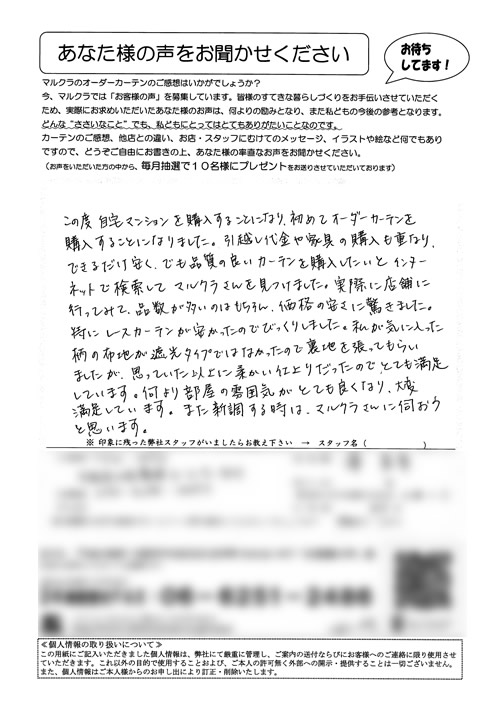 あなた様の声をお聞かせください
お待ち
してます!
マルクラのオーダーカーテンのご感想はいかがでしょうか?
今、マルクラでは「お客様の声」を募集しています。皆様のすてきな暮らしづくりをお手伝いさせていただく
ため、実際にお求めいただいたあなた様のお声は、何よりの励みとなり、また私どもの今後の参考となります。
どんな“ささいなこと”でも、私どもにとってはとてもありがたいことなのです。
カーテンのご感想、他店との違い、お店・スタッフにむけてのメッセージ、イラストや絵など何でもあり
ですので、どうぞご自由にお書きの上、あなた様の率直なお声をお聞かせください。
(お声をいただいた方の中から、毎月抽選で10名様にプレゼントをお送りさせていただいております)
この度 自宅マンションを購入することになり、初めてオーダーカーテンを
購入することになりました。引越し代金や家具の購入も重なり、
できるだけ安く、でも品質の良いカーテンを購入したいと インター
ネットで検索して マルクラさんを見つけました。実際に店舗に
行ってみて、品数が多いのはもちろん、価格の安さに驚きました。
特に レースカーテンが安かったのでびっくりしました。私が気に入った
柄の布地が遮光タイプではなかったので裏地を張ってもらい
ましたが、思っていた以上に柔かい仕上りだったのでとても満足
しています。何より部屋の雰囲気がとても良くなり、大変
満足しています。また新調する時は、マルクラさんに伺おう
と思います。
※ 印象に残った弊社スタッフがいましたらお教え下さい → スタッフ名( )
06-6251-2486
≪個人情報の取り扱いについて≫
この用紙にご記入いただきました個人情報は、弊社にて厳重に管理し、ご案内の送付ならびにお客様へのご連絡に限り使用させ
ていただきます。これ以外の目的で使用することおよび、ご本人の許可無く外部への開示・提供することは一切ございません。
また、個人情報はご本人様からのお申し出により訂正・削除いたします。